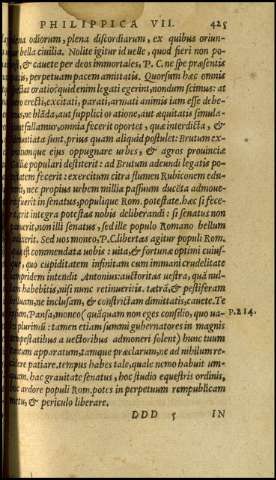 PHILIPPICA VII. 425
plena odiorum, plena discordiarum, ex quibus oriun-
bella ciuilia. Nolite igitur id uelle, quod fieri non po-
, & cauete per deos immortales, P. C. ne spe præsentis
, perpetuam pacem amittatis. Quorsum hæc omnis
oratio? quid enim legati egerint, nondum scimus: at
erecti, excitati, parati, armati animis iam esse debe-
ne blãda, aut supplici oratione, aut æquitatis simula-
fallamur, omnia fecerit oportet, quæ interdicta, &
sunt, prius quam aliquid postulet: Brutum ex-
eius oppugnare urbes, & agros prouinciæ
populari destiterit: ad Brutum adeundi legatis po-
fecerit: exercitum citra flumen Rubiconem edu-
nec propius urbem millia passuum ducēta admoue-
fuerit in senatus, populique Rom. potestate. hæc si fece-
erit integra potestas nobis deliberandi: si senatus non
paruerit, non illi senatus, sed ille populo Romano bellum
. Sed uos moneo, P. C. libertas agitur populi Rom.
est commendata uobis: uita, & fortunæ optimi cuius-
quo cupiditatem infinitam cum immani crudelitate
pridem intendit Antonius: auctoritas uestra, quã nul-
habebitis, nisi nunc retinueritis. tætrã, & pestiferam
beluam, ne inclusam, & constrictam dimittatis, cauete. Te
, Pansa, moneo (quãquam non eges consilio, quo ua- p.214.
plurimũ: tamen etiam summi gubernatores in magnis
tempestatibus a uectoribus admoneri solent) hunc tuum
apparatum, tamque præclarum, ne ad nihilum re-
patiare, tempus habes tale, quale nemo habuit um-
quam, hac grauitate senatus, hoc studio equestris ordinis,
ardore populi Rom. potes in perpetuum rempublicam
metu, & periculo liberare.
DDD 5 IN